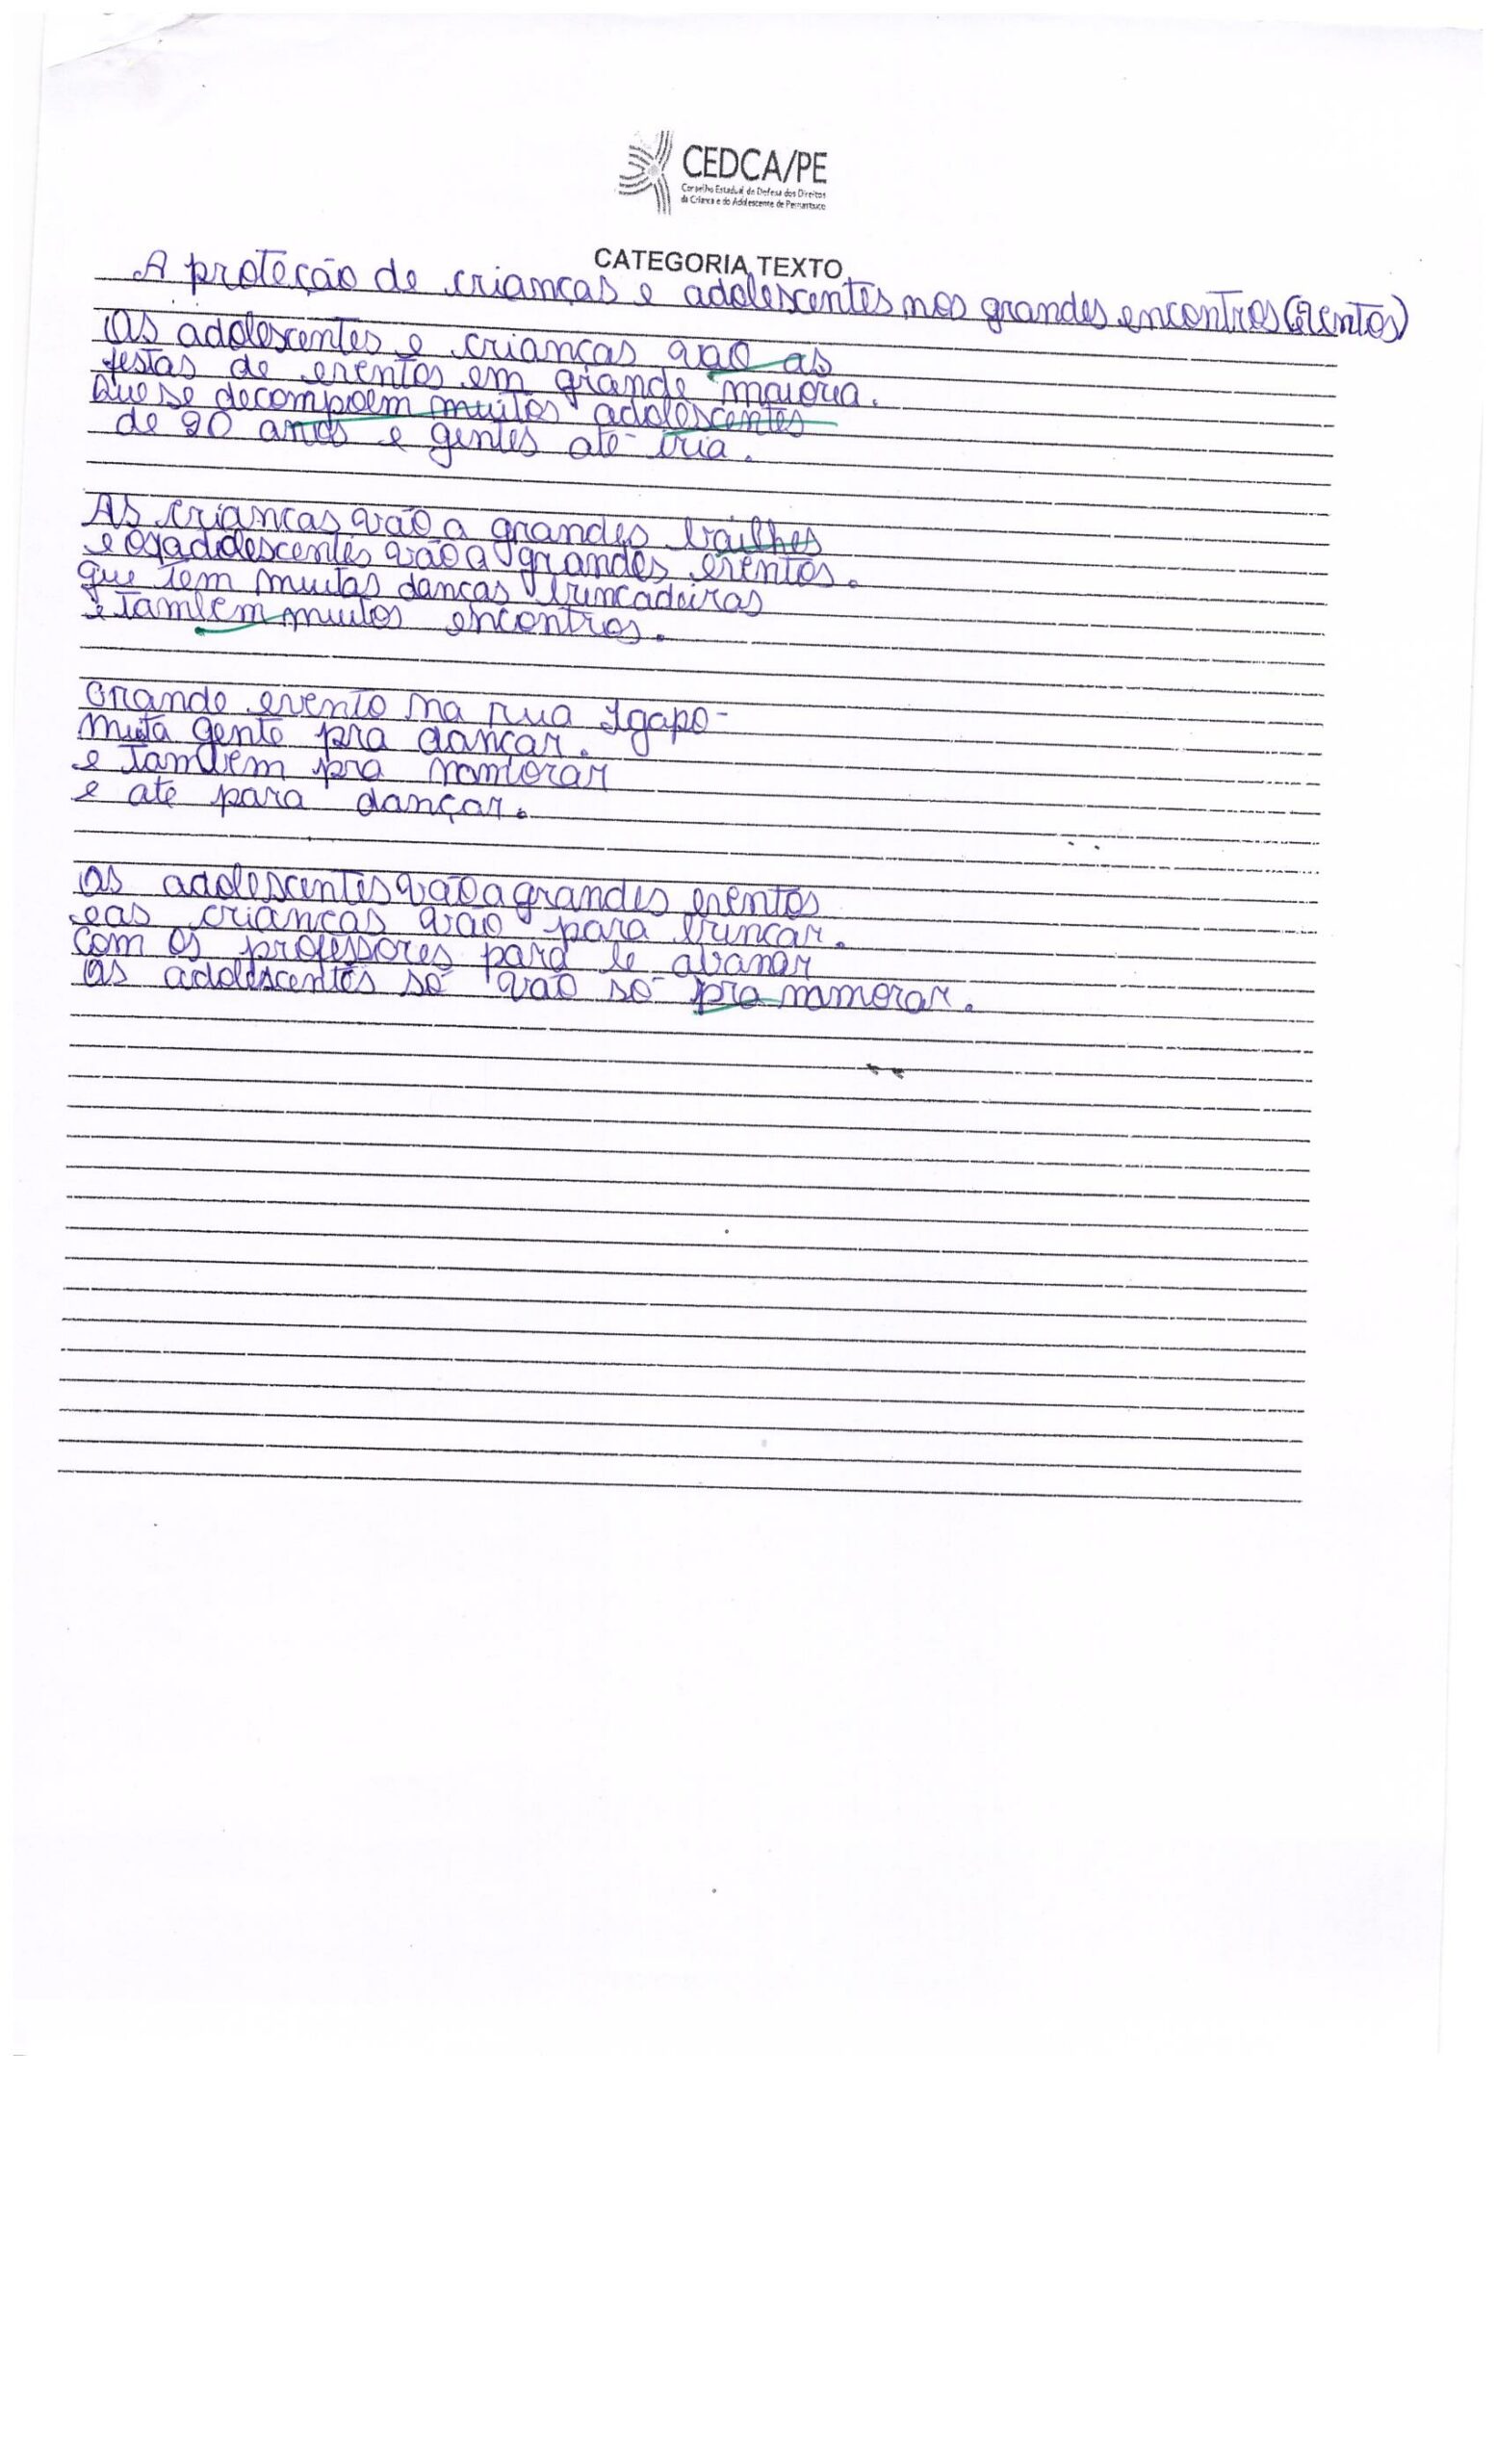 CEDCA/PE
Conselho Estadual de Defesa dos Direitos
da Criança e do Adolescente de Pernambuco
CATEGORIA TEXTO
A proteção de crianças e adolescentes nos grandes encontros (eventos)
Os adolescentes e crianças vao as
festas de eventos em grande maioria.
Que se decompoem muitos adolescentes
de 20 anos e gentes ate iria.
As crianças vão a grandes bailhes
e os adolescentes vão a grandes eventos.
que tem muitas danças brincadeiras
e tambem muitos encontros.
Grande evento na rua Igapo
muita gente pra dançar.
e tambem pra namorar
e ate para dançar.
Os adolescentes vão a grandes eventos
e as crianças vão para brincar.
Com os professores para le abanar
Os adolescentes só vão só pra mmorar.